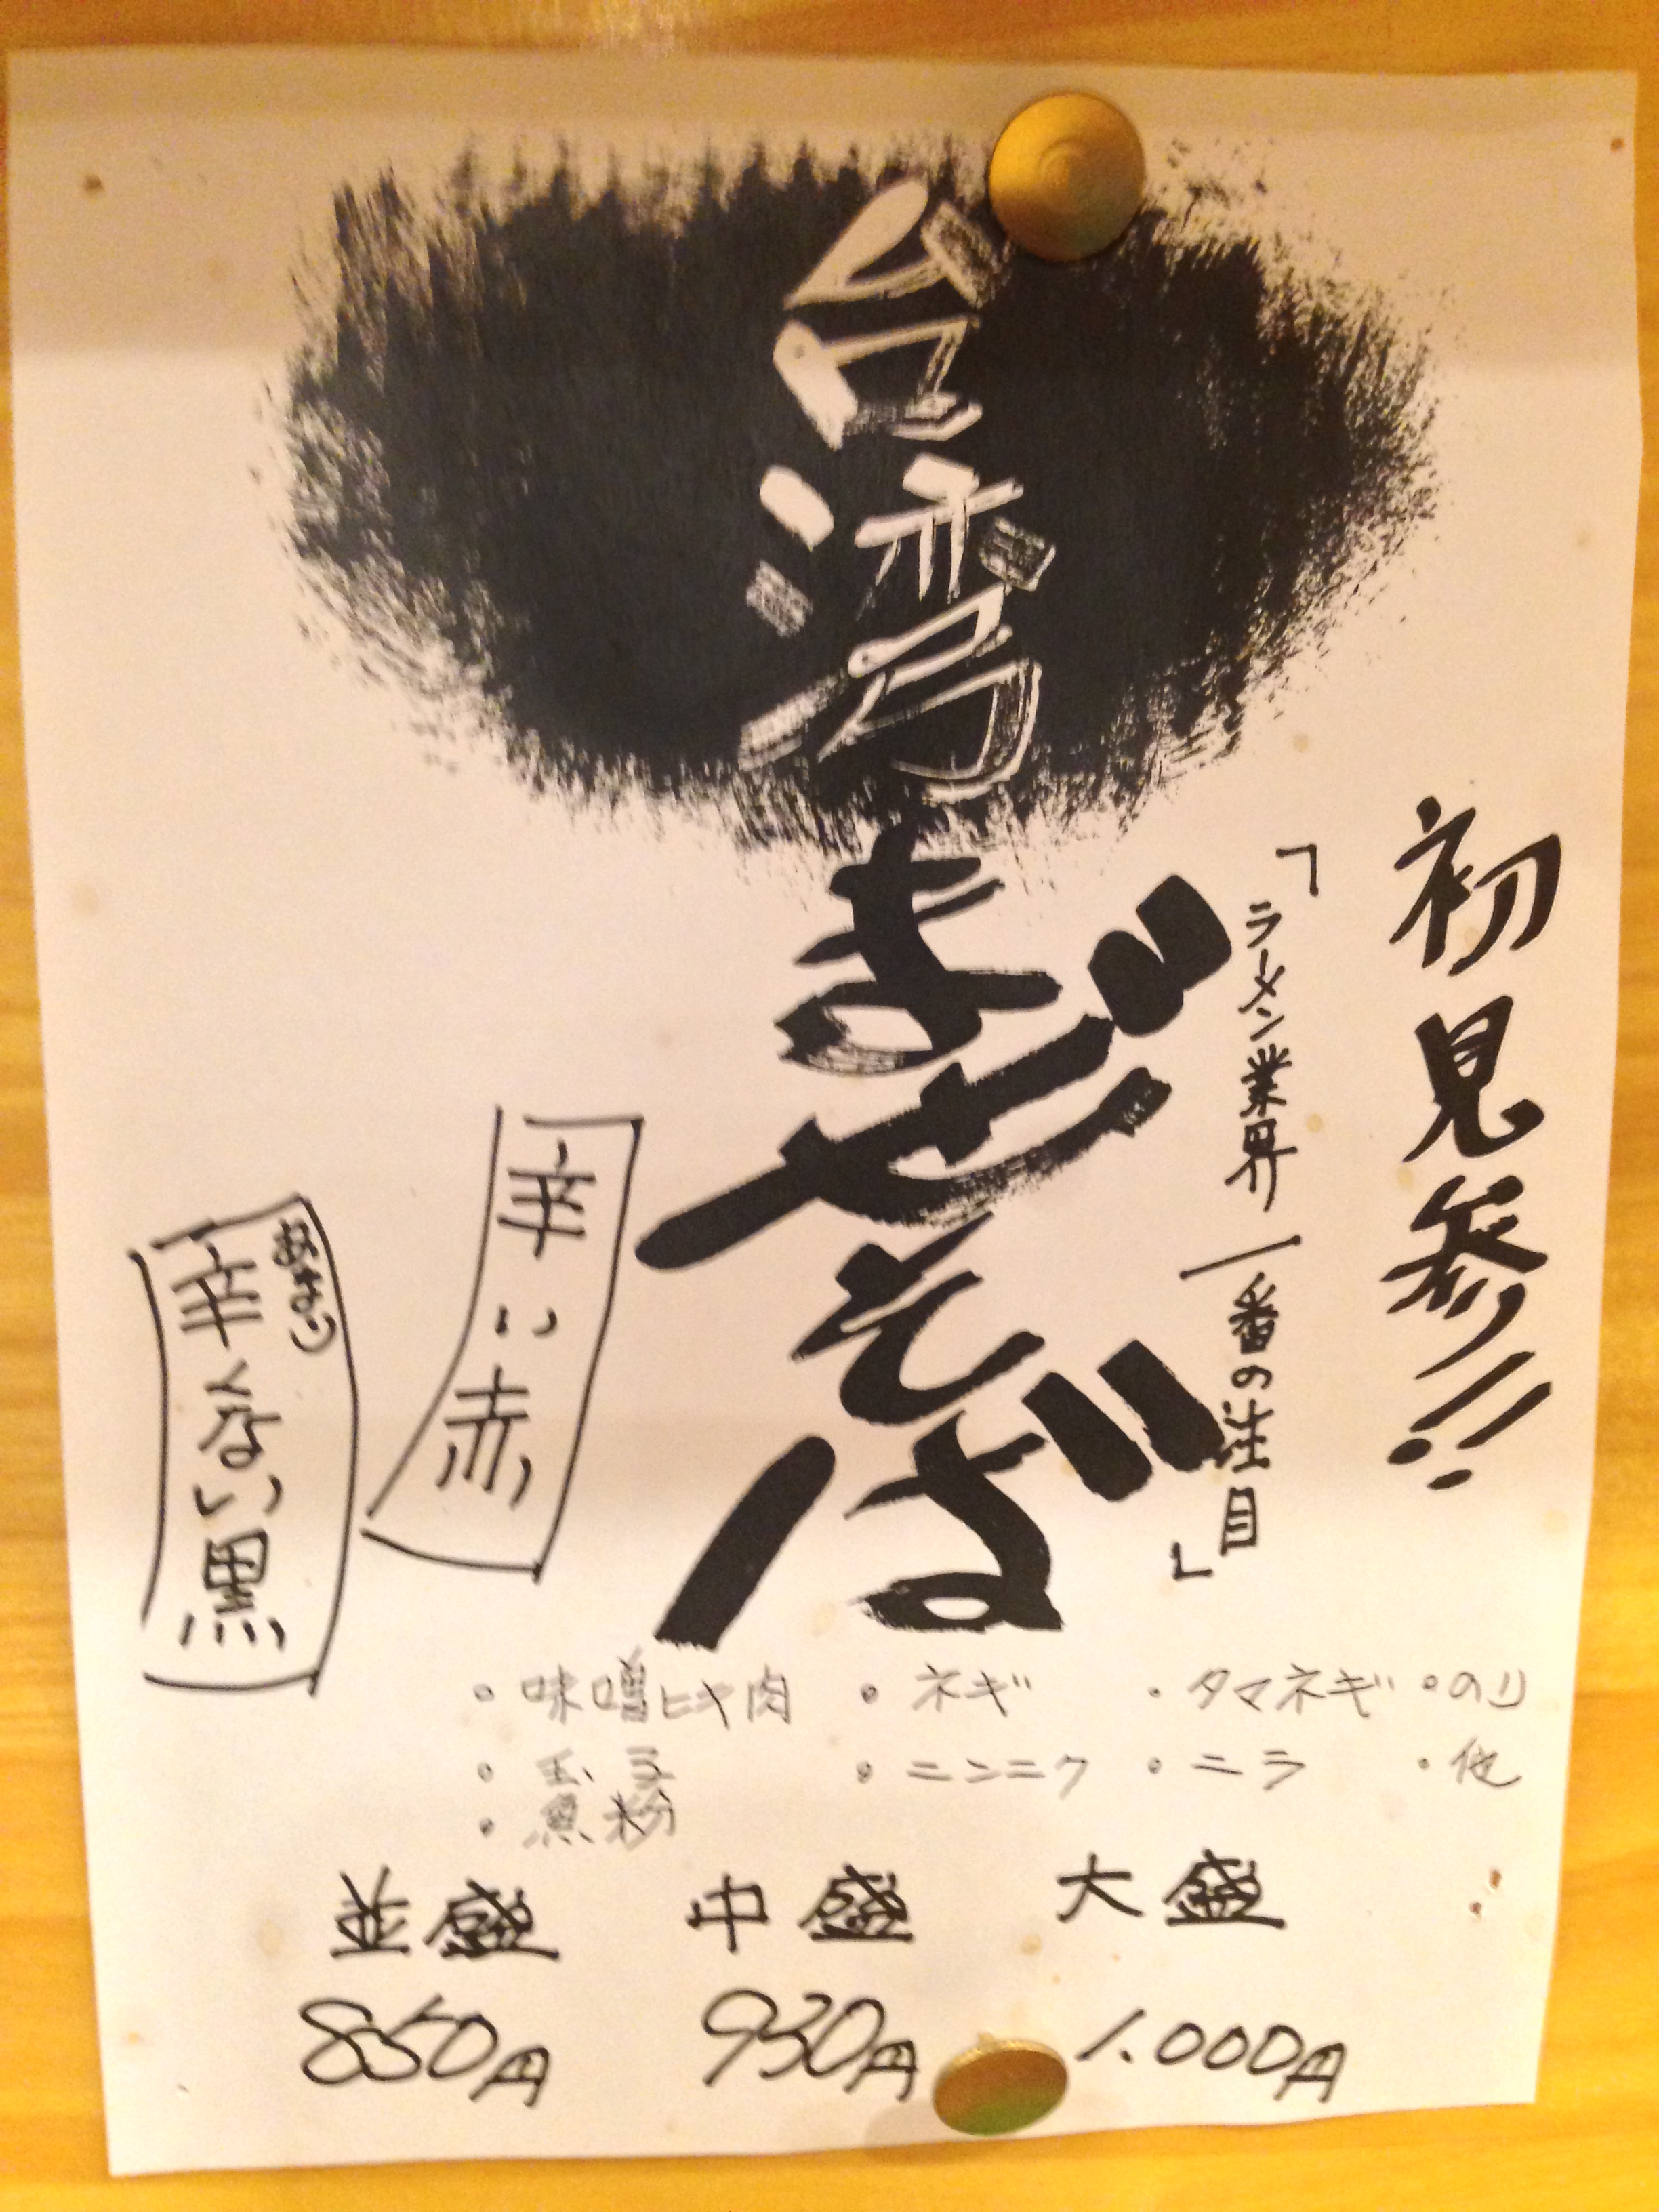 初見参!!
「ラーメン業界一番の注目」
台湾まぜそば
辛い赤
辛くない黒
・味噌ヒキ肉 ・ネギ ・タマネギ ・のり
・玉子 ・ニンニク ・ニラ ・他
・魚粉
並盛 中盛 大盛
850円 930円 1.000円